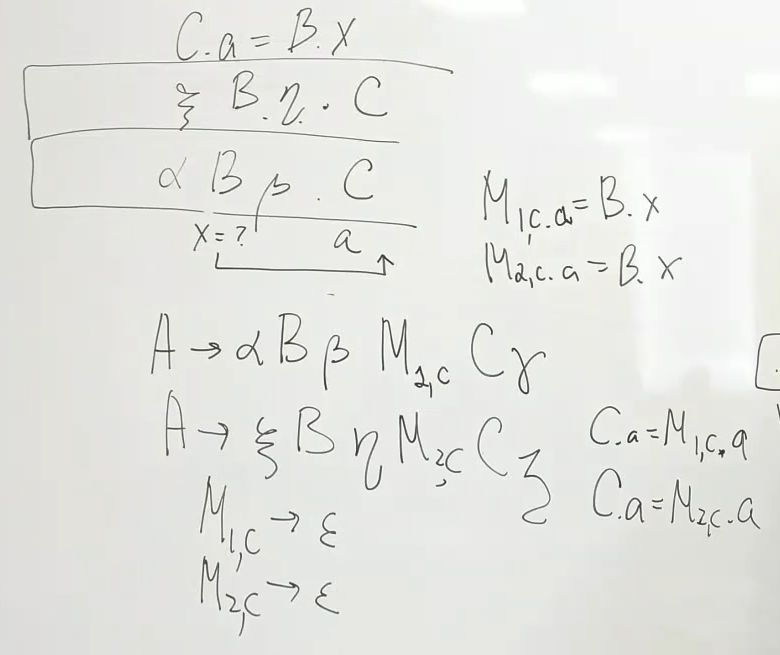 C.a = B.x
ξ B.η. C
α B β . C
x = ? a
M₁,c.a = B.x
M₂,c.a = B.x
A → α B β M₁,c C γ
A → ξ B η M₂,c C ζ
C.a = M₁,c.a
C.a = M₂,c.a
M₁,c → ε
M₂,c → ε